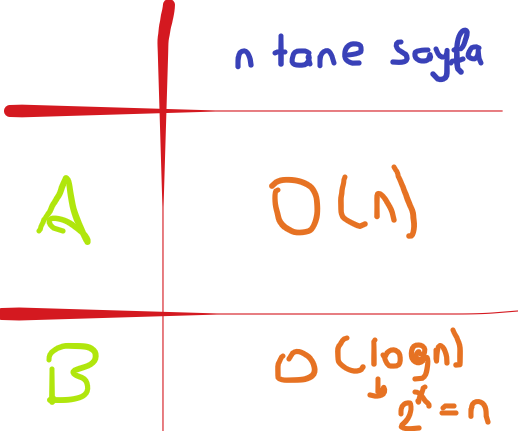 n tane sayfa
A O(n)
B O(logn)
↳ 2^x = n